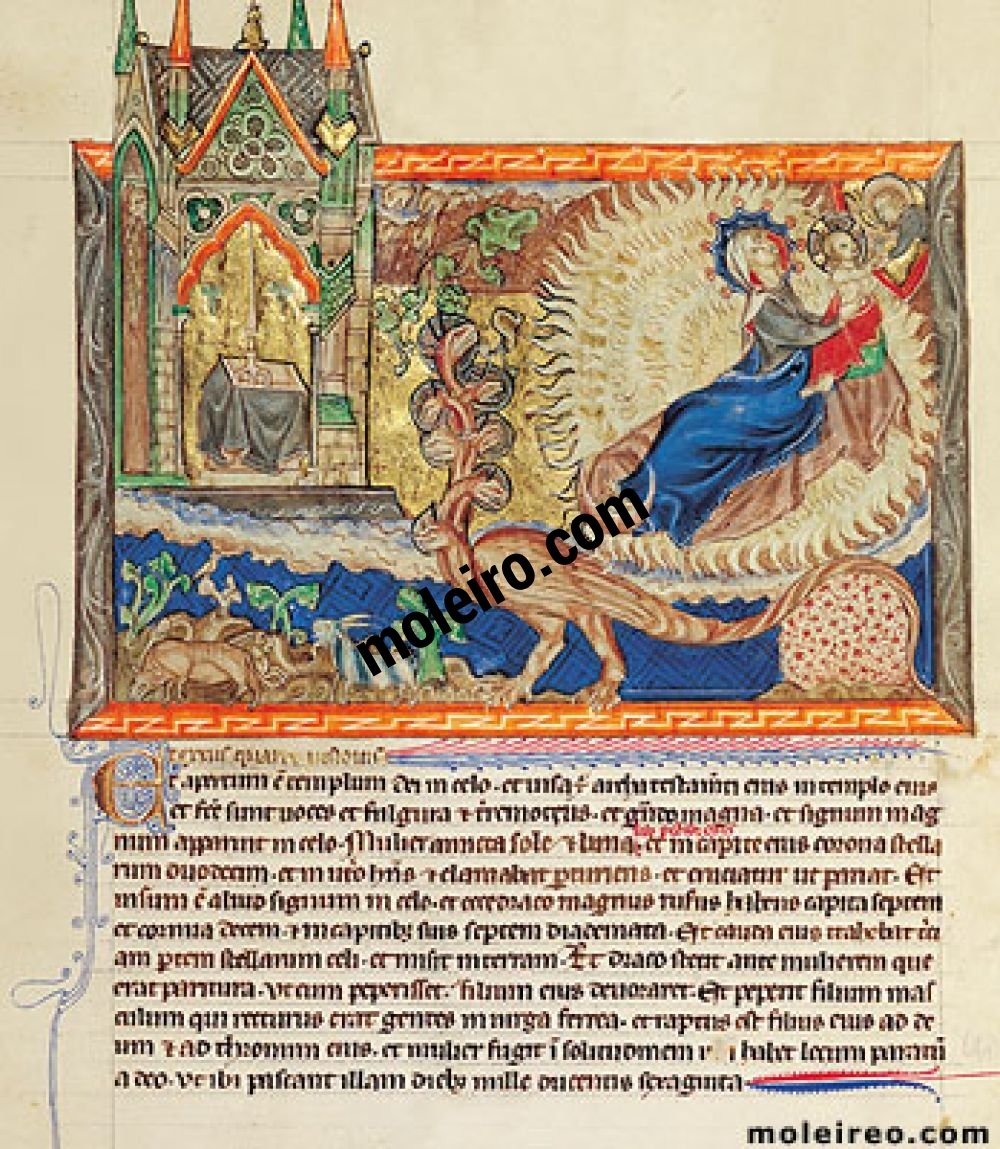 moleiro.com
Et apertum ē templum dei in celo. et uisa ÷ archa testam̄ti eius in templo eius
et fc̄e sunt uoces et fulgura ⁊ t̄remotus. et g̃ndo magna. et signum mag
num apparuit in celo. Mulier amicta sole ⁊ luna et in capite eius corona stella
rum duodecim. et in ut̄o hn̄s ⁊ clamabat parturiens. et cruciatur ut pariat. Est
uisum ē aliud signum in celo. et ecce draco magnus rufus habens capita septem
et cornua decem. ⁊ in capitibꝫ suis septem diademata. Et cauda eius trahebat t̄ci
am partem stellarum celi. et misit in terram. Et draco stetit ante mulierem que
erat paritura. Vt cum peperisset. filium eius deuoraret. Et peperit filium mas
culum qui recturus erat gentes in uirga ferrea. et raptus est filius eius ad de
um ⁊ ad thronum eius. et mulier fugit ī solitudinem habet locum paratū
a deo. vt ibi pascant illam diebꝫ mille ducentis sexaginta
moleireo.com